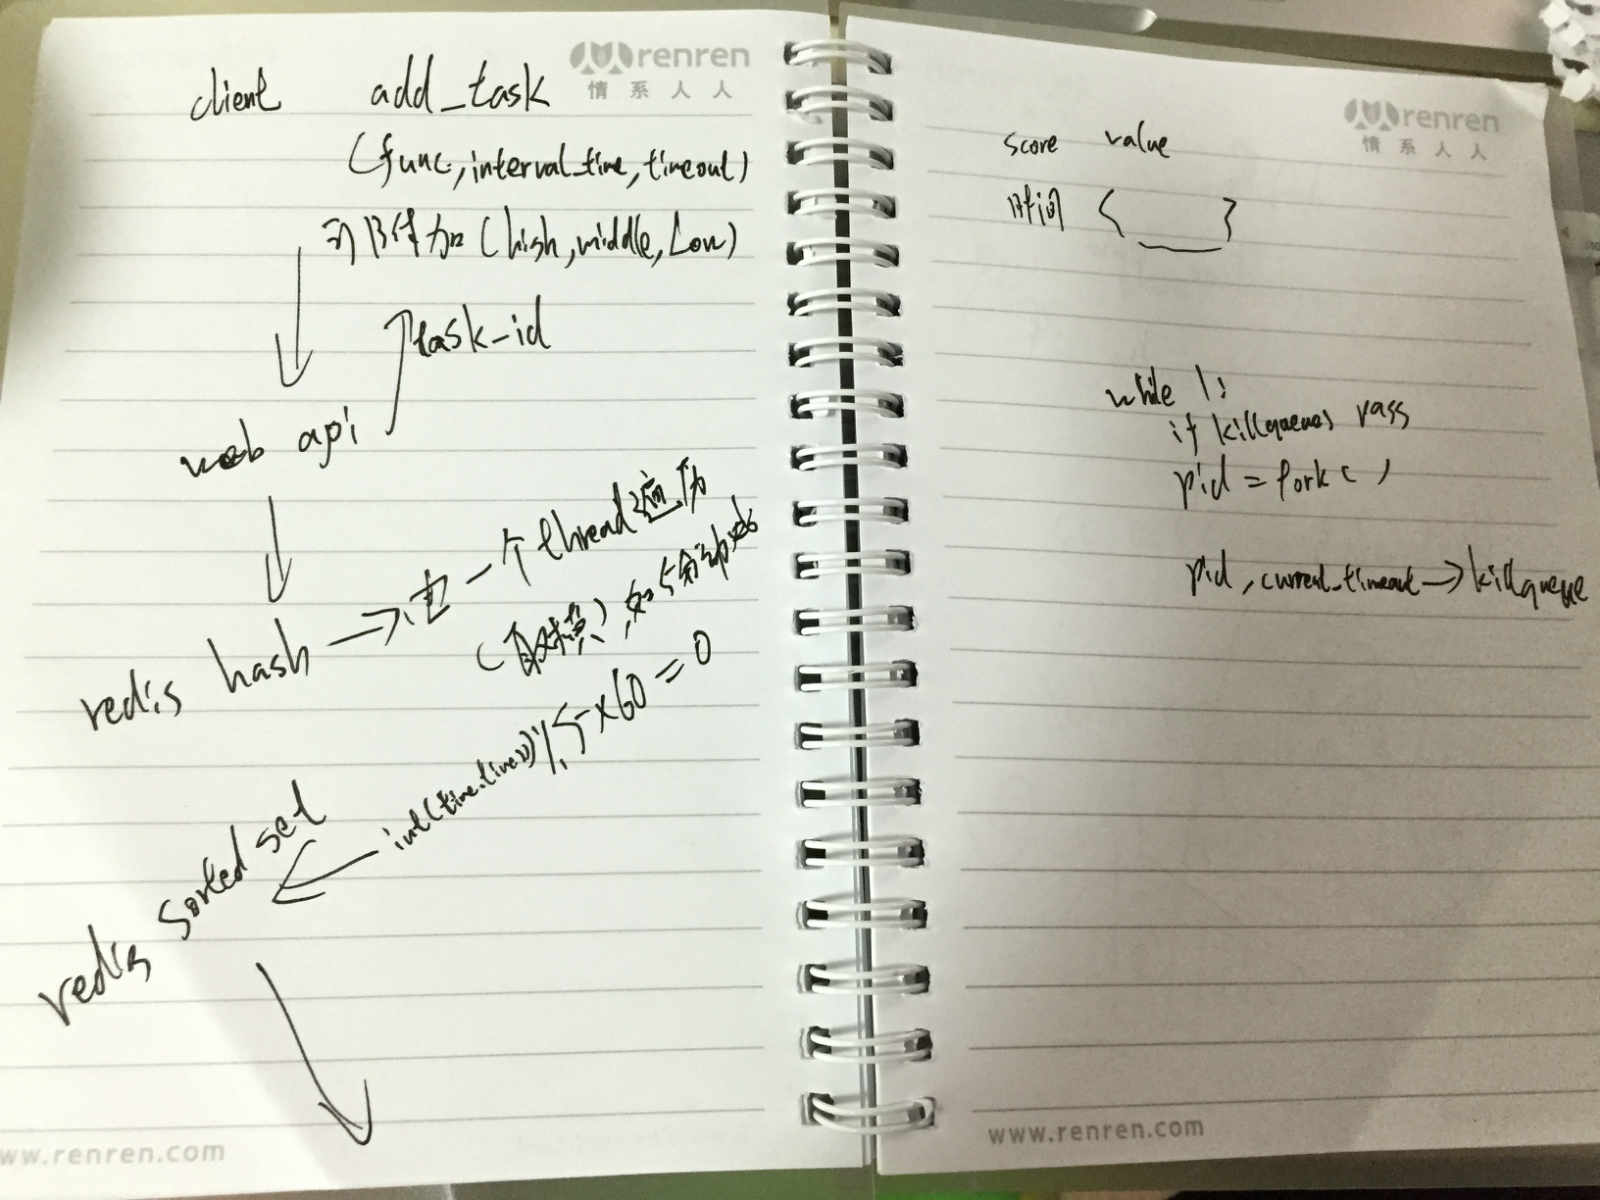 renren
情系人人
client add_task
(func, interval_time, timeout)
(high, middle, Low)
task-id
web api
redis hash 一个thread遍历
(取模),如5分钟
int(time.time())%5×60=0
redis sorted set
www.renren.com
renren
情系人人
score value
时间 { }
while 1:
if killqueue pass
pid = fork()
pid, current_timeout → killqueue
www.renren.com